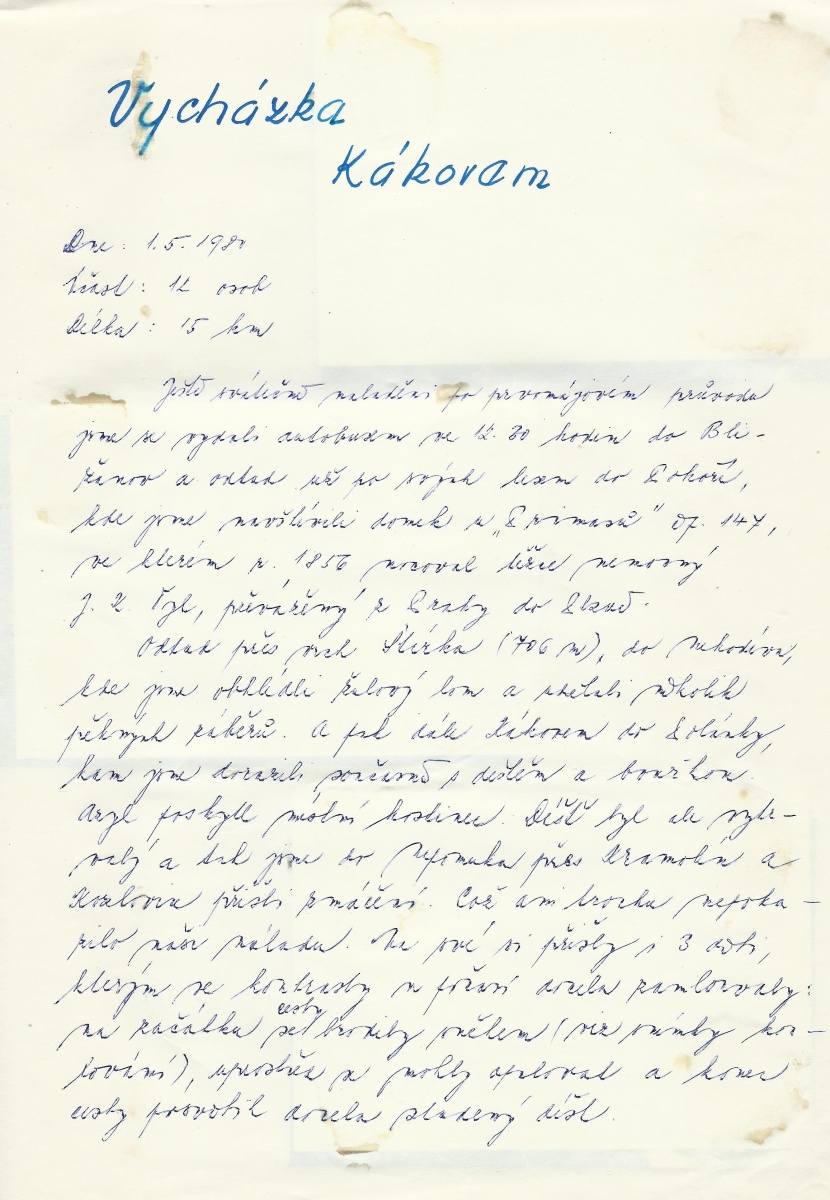 Vycházka
Kákovem
Dne: 1.5.1980
Účast: 12 osob
Délka: 15 km
Ještě svátečně naladěni po prvomájovém průvodu
jsme se vydali autobusem ve 12.30 hodin do Bli-
žanov a odtud už po svých lesem do Pohoří,
kde jsme navštívili domek u „Primasů" čp. 147,
ve kterém r. 1856 nocoval těžce nemocný
J. K. Tyl, převážený z Prahy do Plzně.
Odtud přes vrch Štírka (706 m), do Nehodíva,
kde jsme obhlédli žulový lom a udělali několik
pěkných záběrů. A pak dále Kákovem do Polánky,
kam jsme dorazili současně s deštěm a bouřkou.
Azyl poskytl místní hostinec. Déšť byl ale vytr-
valý a tak jsme do Nepomuka přes Kramolín a
Kozlovice přišli zmáčení. Což ani trochu nepoka-
zilo naši náladu. Na své si přišly i 3 děti,
kterým se kontrasty v počasí docela zamlouvaly:
na začátku cesty se brodily sněhem (viz snímky kou-
lování), uprostřed se mohly opalovat a konec
cesty posvětil docela studený déšť.